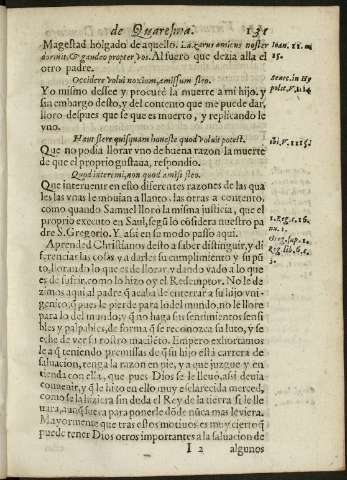 de Quaresma. 131
Magestad holgado de aquello. Lazarus amicus noster
dormit, & gaudeo propter vos. Al fuero que dezia alla el
otro padre.
Ioan. 11. nu
15.
Occidere volui noxium, amissum fleo.
Senec. in Hy
polit. V.
Yo mismo dessee y procurè la muerte a mi hijo, y
sin embargo desto, y del contento que me puede dar,
lloro despues que se que es muerto, y replicando le
vno.
Haut flere quisquam honeste quod voluit potest.
ibi, V. 1115.
Que no podia llorar vno de buena razon la muerte
de que el proprio gustaua, respondio.
Quod interemi, non quod amisi fleo.
Que interuenir en esto diferentes razones de las qua
les las vnas le mouian a llanto. las otras a contento.
como quando Samuel lloro la misma justicia, que el
proprio executo en Saul, segũ lo cõsidera nuestro pa
dre S. Gregorio. Y asi en su modo passo aqui.
1. Reg. c. 16.
nu. 1.
Greg. sup. 1.
Reg. lib. 6. c.
3.
Aprended Christianos desto a saber distinguir, y di
ferenciar las cosas y a darles su cumplimiento y su pũ
to, llorando lo que es de llorar y dando vado a lo que
es de sufrir, como lo hizo oy el Redemptor. No le de
zimos aqui al padre q̃ acaba de enterrar a su hijo vni
genico, q̃ pues le pierde para lo del mundo, no le llore
para lo del mundo, y q̃ no haga sus sentimientos sensi
bles y palpables, de forma q̃ se reconozca su luto, y se
eche de ver su rostro macilẽto. Empero exhortamos
le a q̃ teniendo premissas de q̃ su hijo està carrera de
saluacion, tenga la razon en pie, y a que juzgue y en
tienda con ella, que pues Dios se le lleuò, asi deuia
conuenir, y q̃ le hizo en ello muy esclarecida merced,
como se la hiziera sin deda el Rey de la tierra si le lle
uara, aunq̃ fuera para ponerle dõde nũca mas le viera.
Mayormente que tras estos motiuos es muy cierto q̃
puede tener Dios otros importantes a la saluacion de
I 2 algunos